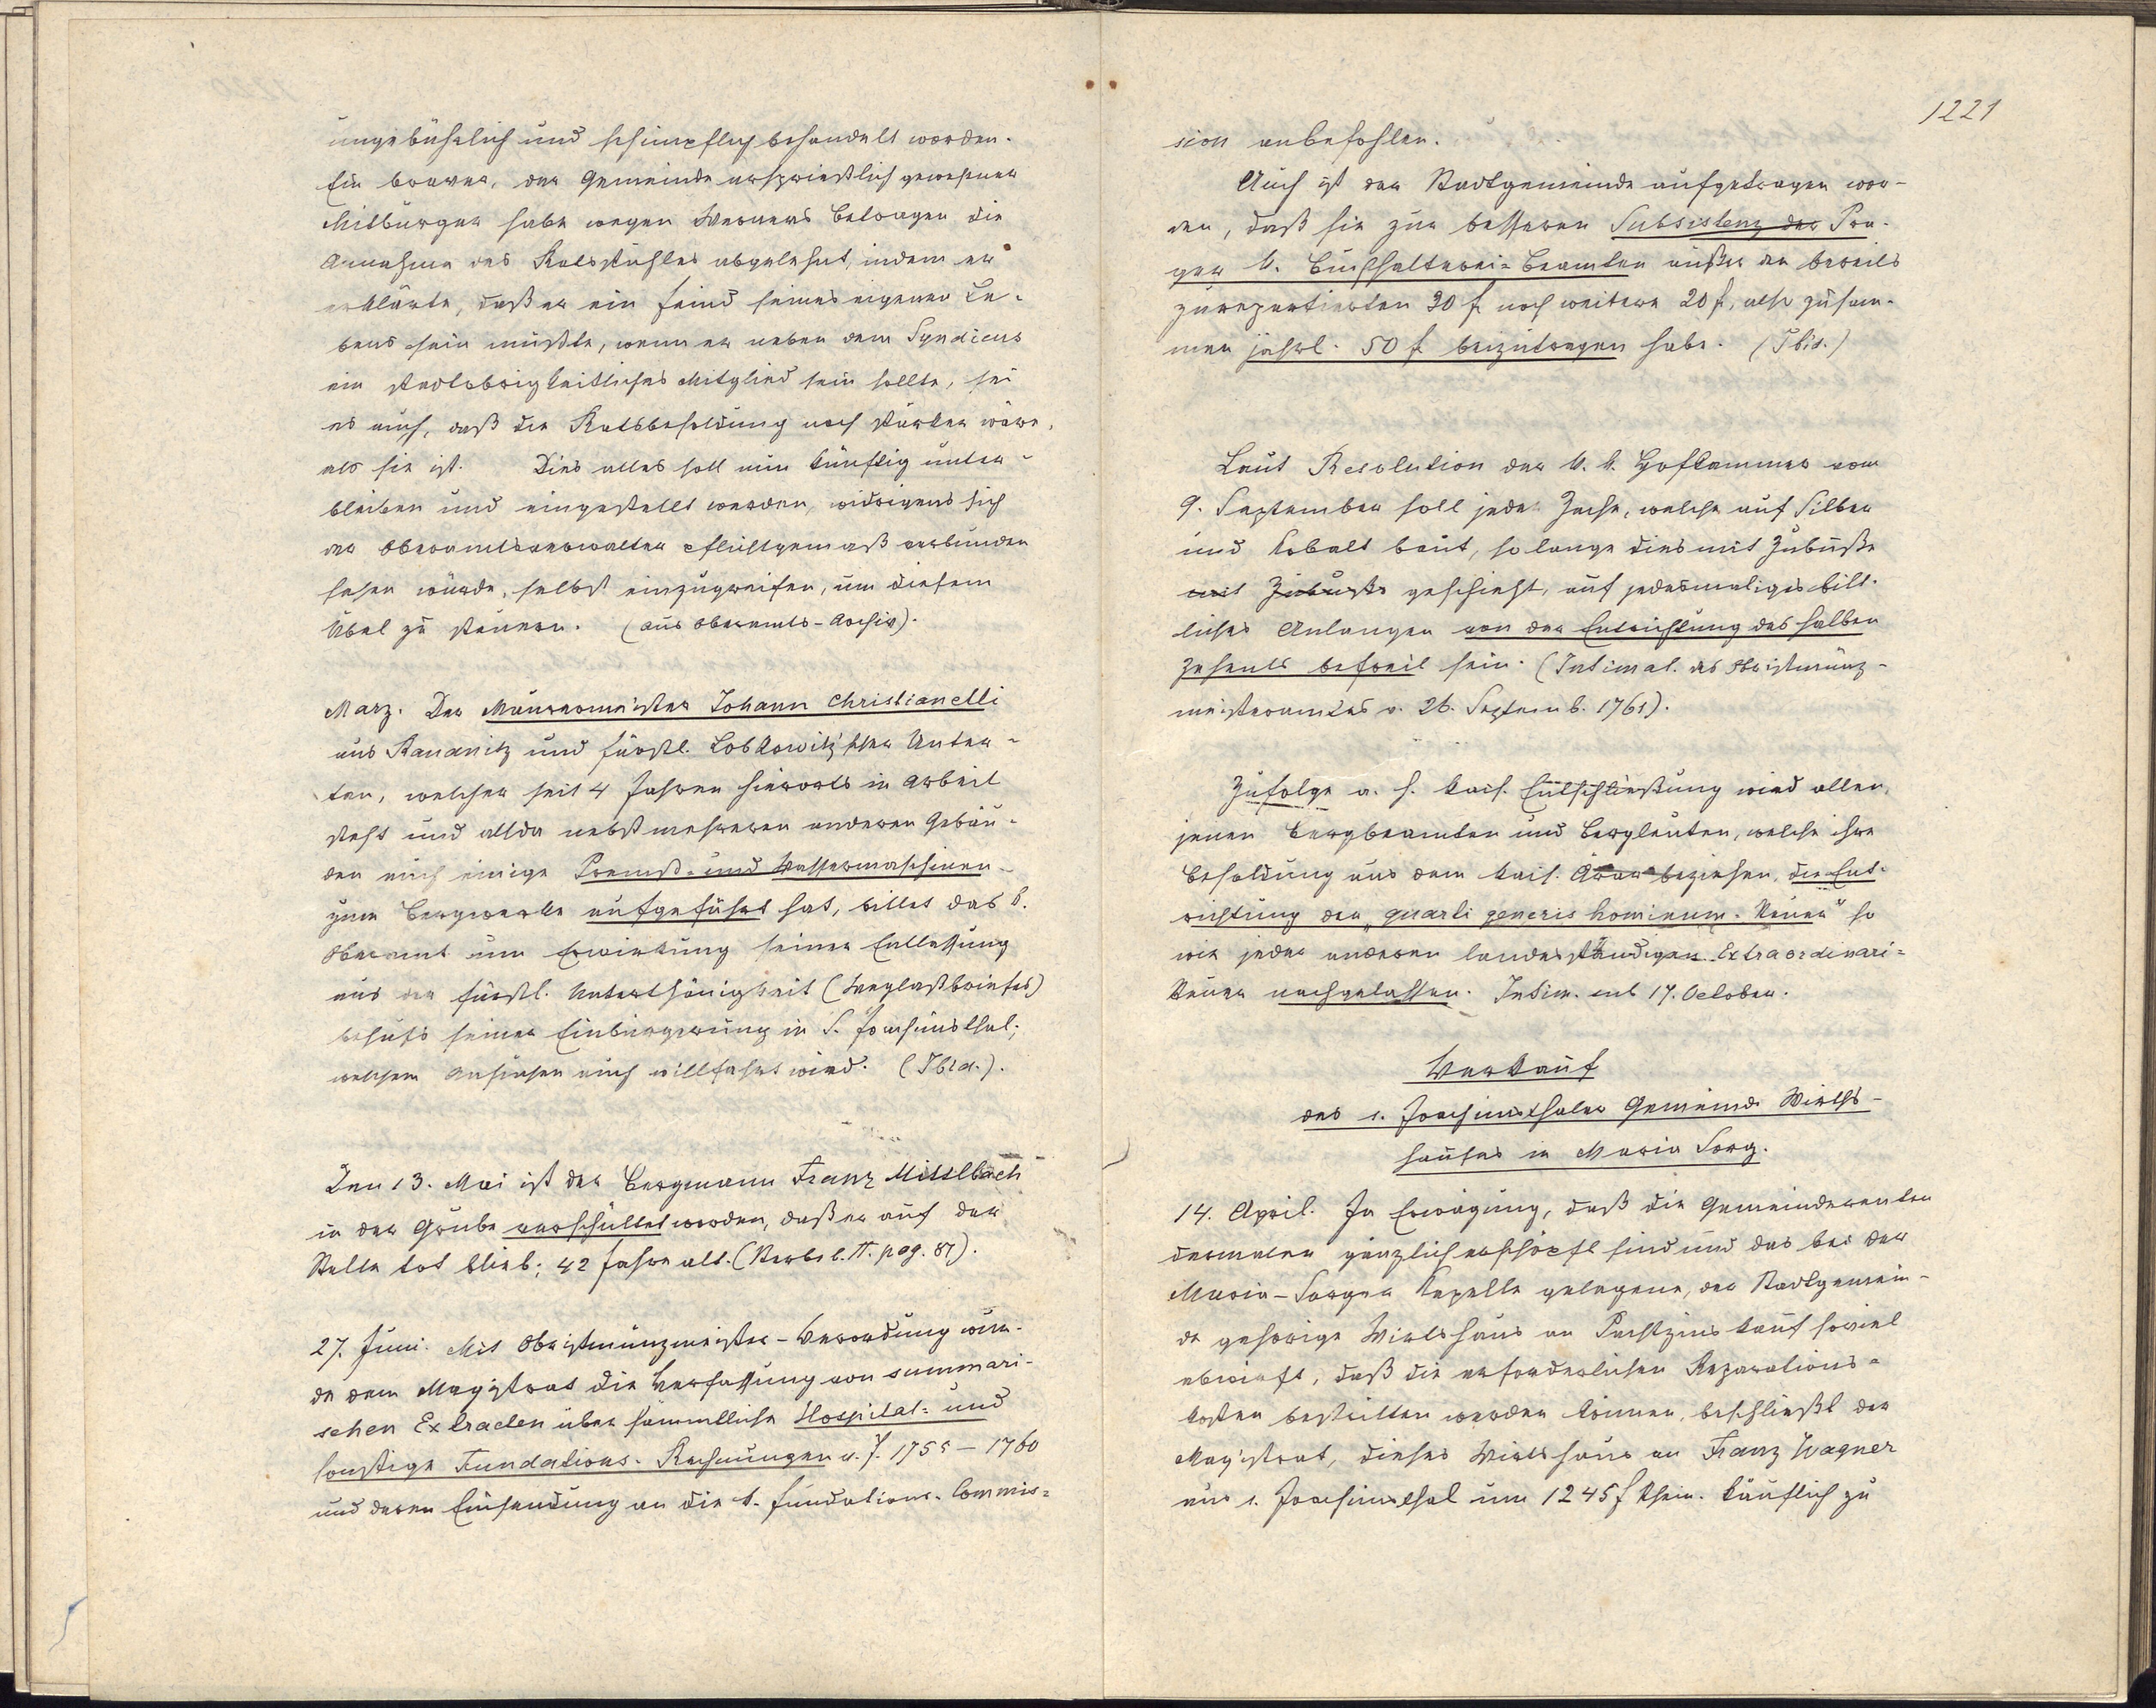 ungebührlich und schimpflich behandelt worden.
Ein braver, der Gemeinde ersprießlich gewesener
Mitbürger habe wegen Werners Betragen die
Annahme des Ratsstuhles abgelehnt, indem er
erklärte, daß er ein Feind seines eigenen Le-
bens sein müßte, wenn er neben dem Syndicus
ein stadtobrigkeitliches Mitglied sein sollte, sei
es auch, daß die Ratsbesoldung noch stärker wäre,
als sie ist. Dies alles soll nun künftig unter-
bleiben und eingestellt werden, widrigens sich
der Oberamtsverwalter pflichtgemäß verbunden
sehen würde, selbst einzugreifen, um diesem
Übel zu steuern. (Aus Oberamts-Archiv).
März. Der Maurermeister Johann Christianelli
aus Raudnitz und fürstl. Lobkowitz'scher Unter-
tan, welcher seit 4 Jahren hierorts in Arbeit
steht und allda nebst mehreren anderen Gebäu-
den auch einige Premß- und Wassermaschinen
zum Bergwerke aufgeführt hat, bittet das k.
Oberamt um Erwirkung seiner Entlassung
aus der fürstl. Unterthänigkeit (Weglaßbriefes)
behufs seiner Einbürgerung in S. Joachimsthal;
welchem Ansuchen auch willfahrt wird. (Ibid.).
Den 13. Mai ist der Bergmann Franz Mittlbach
in der Grube verschüttet worden, daß er auf der
Stelle tot blieb; 42 Jahre alt. (Sterbb. II. pag. 87).
27. Juni. Mit Obristmünzmeister-Verordnung wur-
de dem Magistrat die Verfassung von summari-
schen Extracten über sämmtliche Hospital- und
sonstige Fundations-Rechnungen v. J. 1755 – 1760
und deren Einsendung an die k. Fundations-Commis-
1221
sion anbefohlen.
Auch ist der Stadtgemeinde aufgetragen wor-
den, daß sie zur besseren Subsistenz der Pra-
ger k. Buchhalterei-Beamten außer den bereits
zurepartierten 30 f noch weitere 20 f, also zusam-
men jährl. 50 f beizutragen habe. (Ibid.)
Laut Resolution der k. k. Hofkammer vom
9. September soll jede Zeche, welche auf Silber
und Kobalt baut, so lange dies mit Zubuße
mit Zubuße geschieht, auf jedesmaliges bitt-
liches Anlangen von der Entrichtung des halben
Zehents befreit sein. (Intimat. des Obristmünz-
meisteramtes v. 26. Septemb. 1761).
Zufolge a. h. kais. Entschließung wird allen
jenen Bergbeamten und Bergleuten, welche ihre
Besoldung aus dem kais. Ärar beziehen, die Ent-
richtung der „quarti generis hominum-Steuer" so
wie jeder anderen landesständigen Extraordinari-
steuer nachgelassen. Intim. sub 17. October.
Verkauf
des s. Joachimsthaler Gemeinde Wirths-
hauses in Maria Sorg.
14. April. In Erwägung, daß die Gemeinderenten
dermalen gänzlich erschöpft sind und das bei der
Maria-Sorger Kapelle gelegene, der Stadtgemein-
de gehörige Wirtshaus an Pachtzins kaum soviel
abwirft, daß die erforderlichen Reparations-
kosten bestritten werden können, beschließt der
Magistrat, dieses Wirtshaus an Franz Wagner
aus s. Joachimsthal um 1245 f rhein. käuflich zu